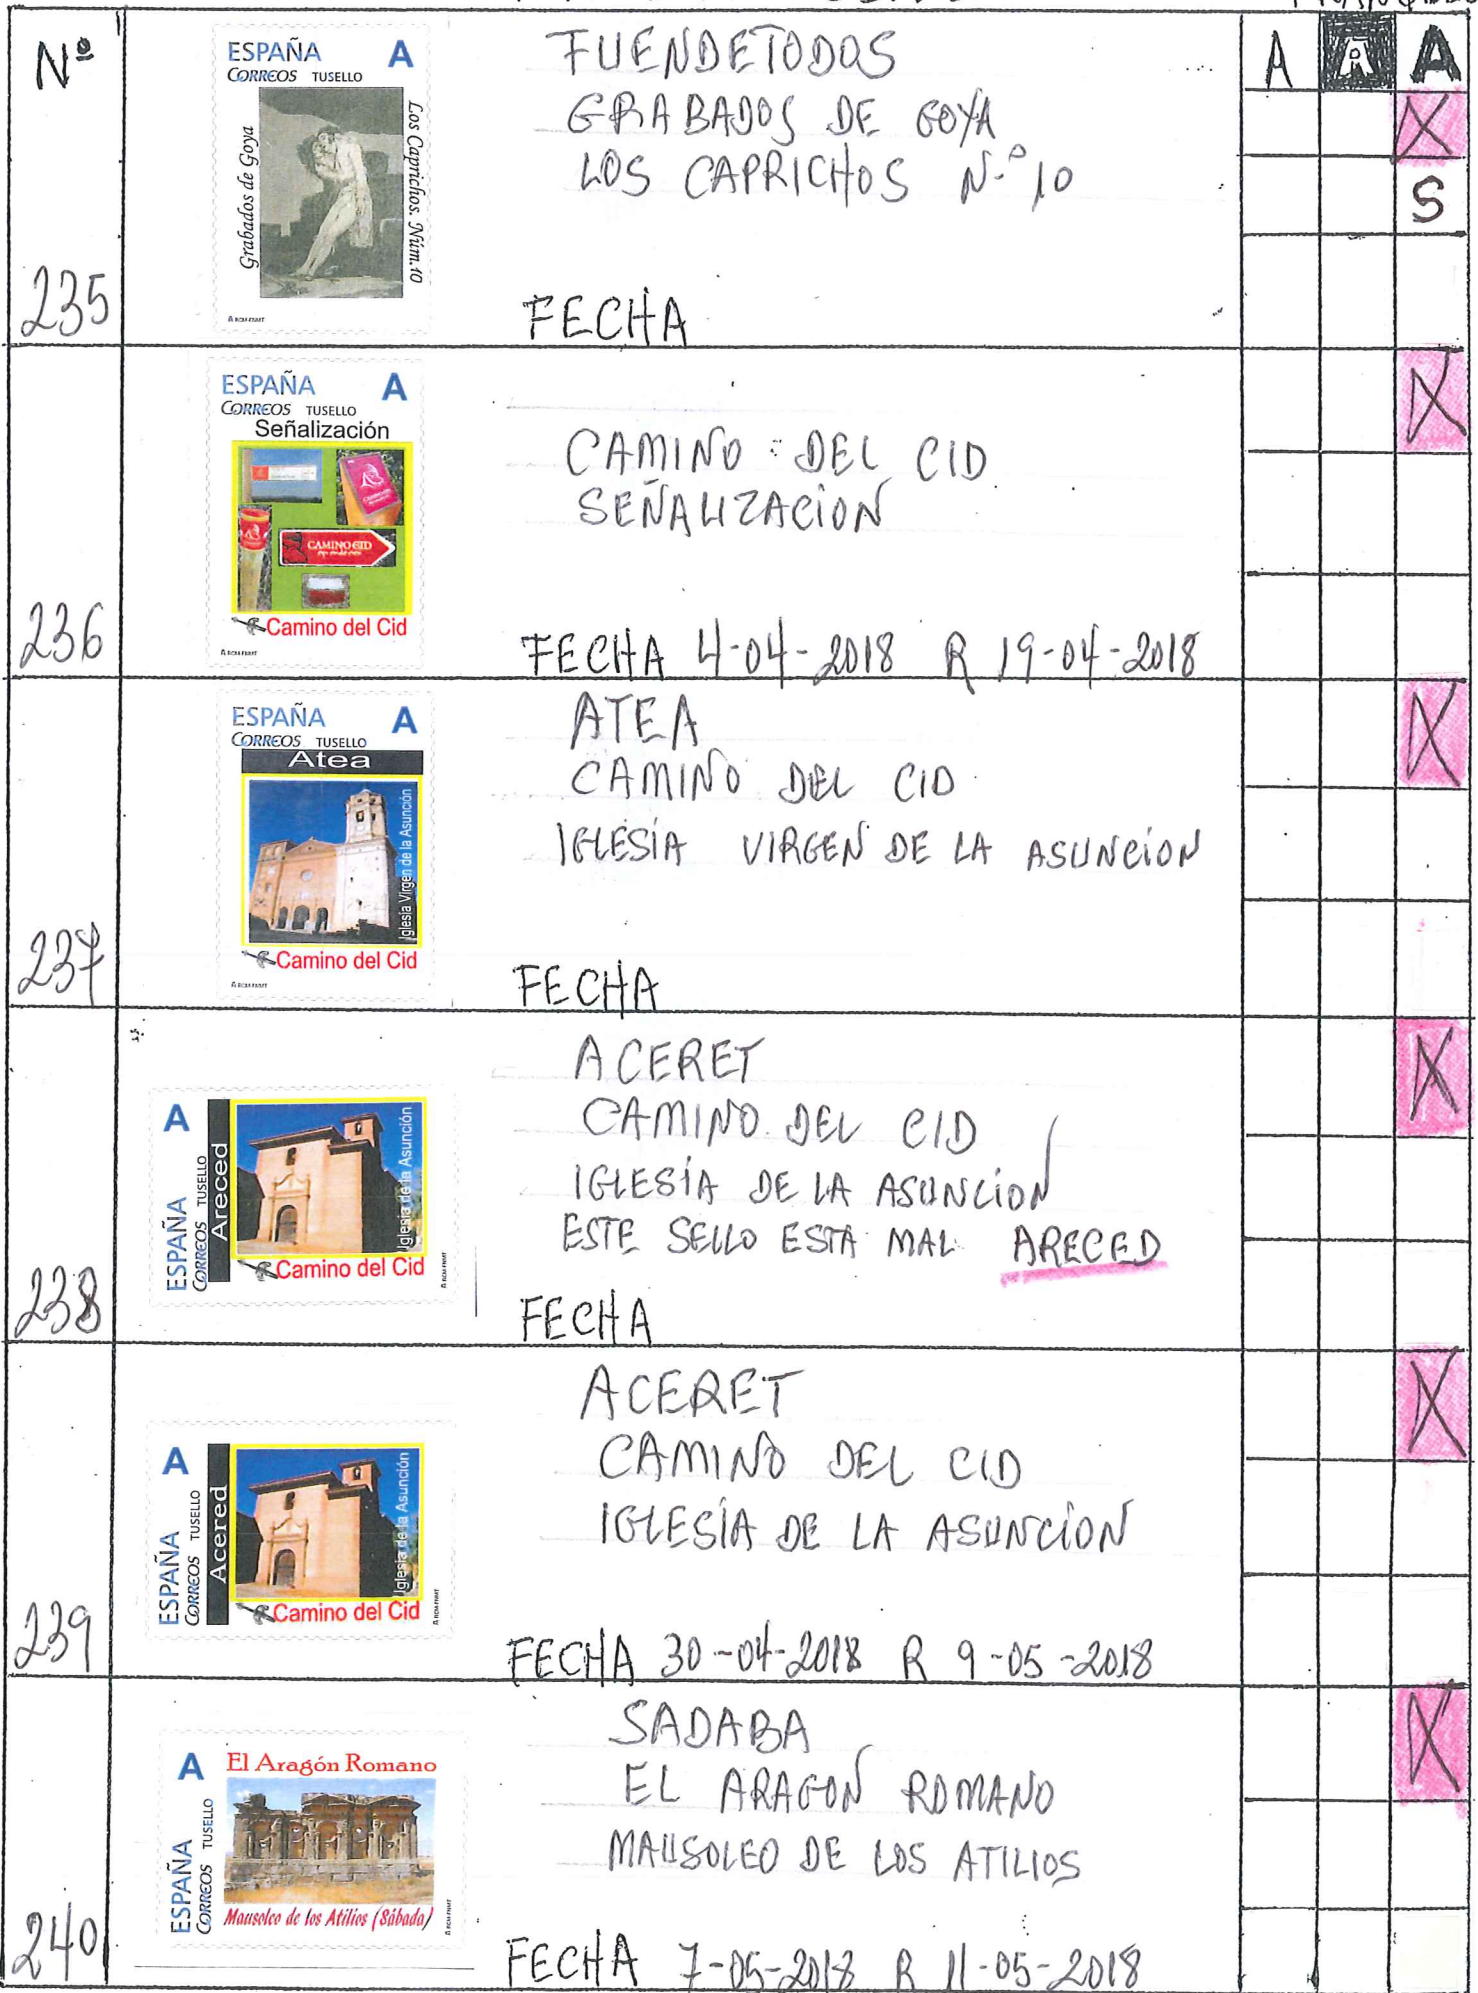 Nº
A A A
235
ESPAÑA A
CORREOS TUSELLO
Grabados de Goya
Los Caprichos. Núm.10
FUENDETODOS
GRABADOS DE GOYA
LOS CAPRICHOS N.º 10
FECHA
X
S
236
ESPAÑA A
CORREOS TUSELLO
Señalización
CAMINO CID
Camino del Cid
CAMINO DEL CID
SEÑALIZACION
FECHA 4-04-2018 R 19-04-2018
X
237
ESPAÑA A
CORREOS TUSELLO
Atea
Iglesia Virgen de la Asunción
Camino del Cid
ATEA
CAMINO DEL CID
IGLESÍA VIRGEN DE LA ASUNCION
FECHA
X
238
A
ESPAÑA
CORREOS TUSELLO
Areced
Iglesia de la Asunción
Camino del Cid
ACERET
CAMINO DEL CID
IGLESÍA DE LA ASUNCION
ESTE SELLO ESTA MAL ARECED
FECHA
X
239
A
ESPAÑA
CORREOS TUSELLO
Acered
Iglesia de la Asunción
Camino del Cid
ACERET
CAMINO DEL CID
IGLESÍA DE LA ASUNCION
FECHA 30-04-2018 R 9-05-2018
X
240
A
ESPAÑA
CORREOS TUSELLO
El Aragón Romano
Mausoleo de los Atilios (Sábada)
SADABA
EL ARAGON ROMANO
MAUSOLEO DE LOS ATILIOS
FECHA 7-05-2018 R 11-05-2018
X